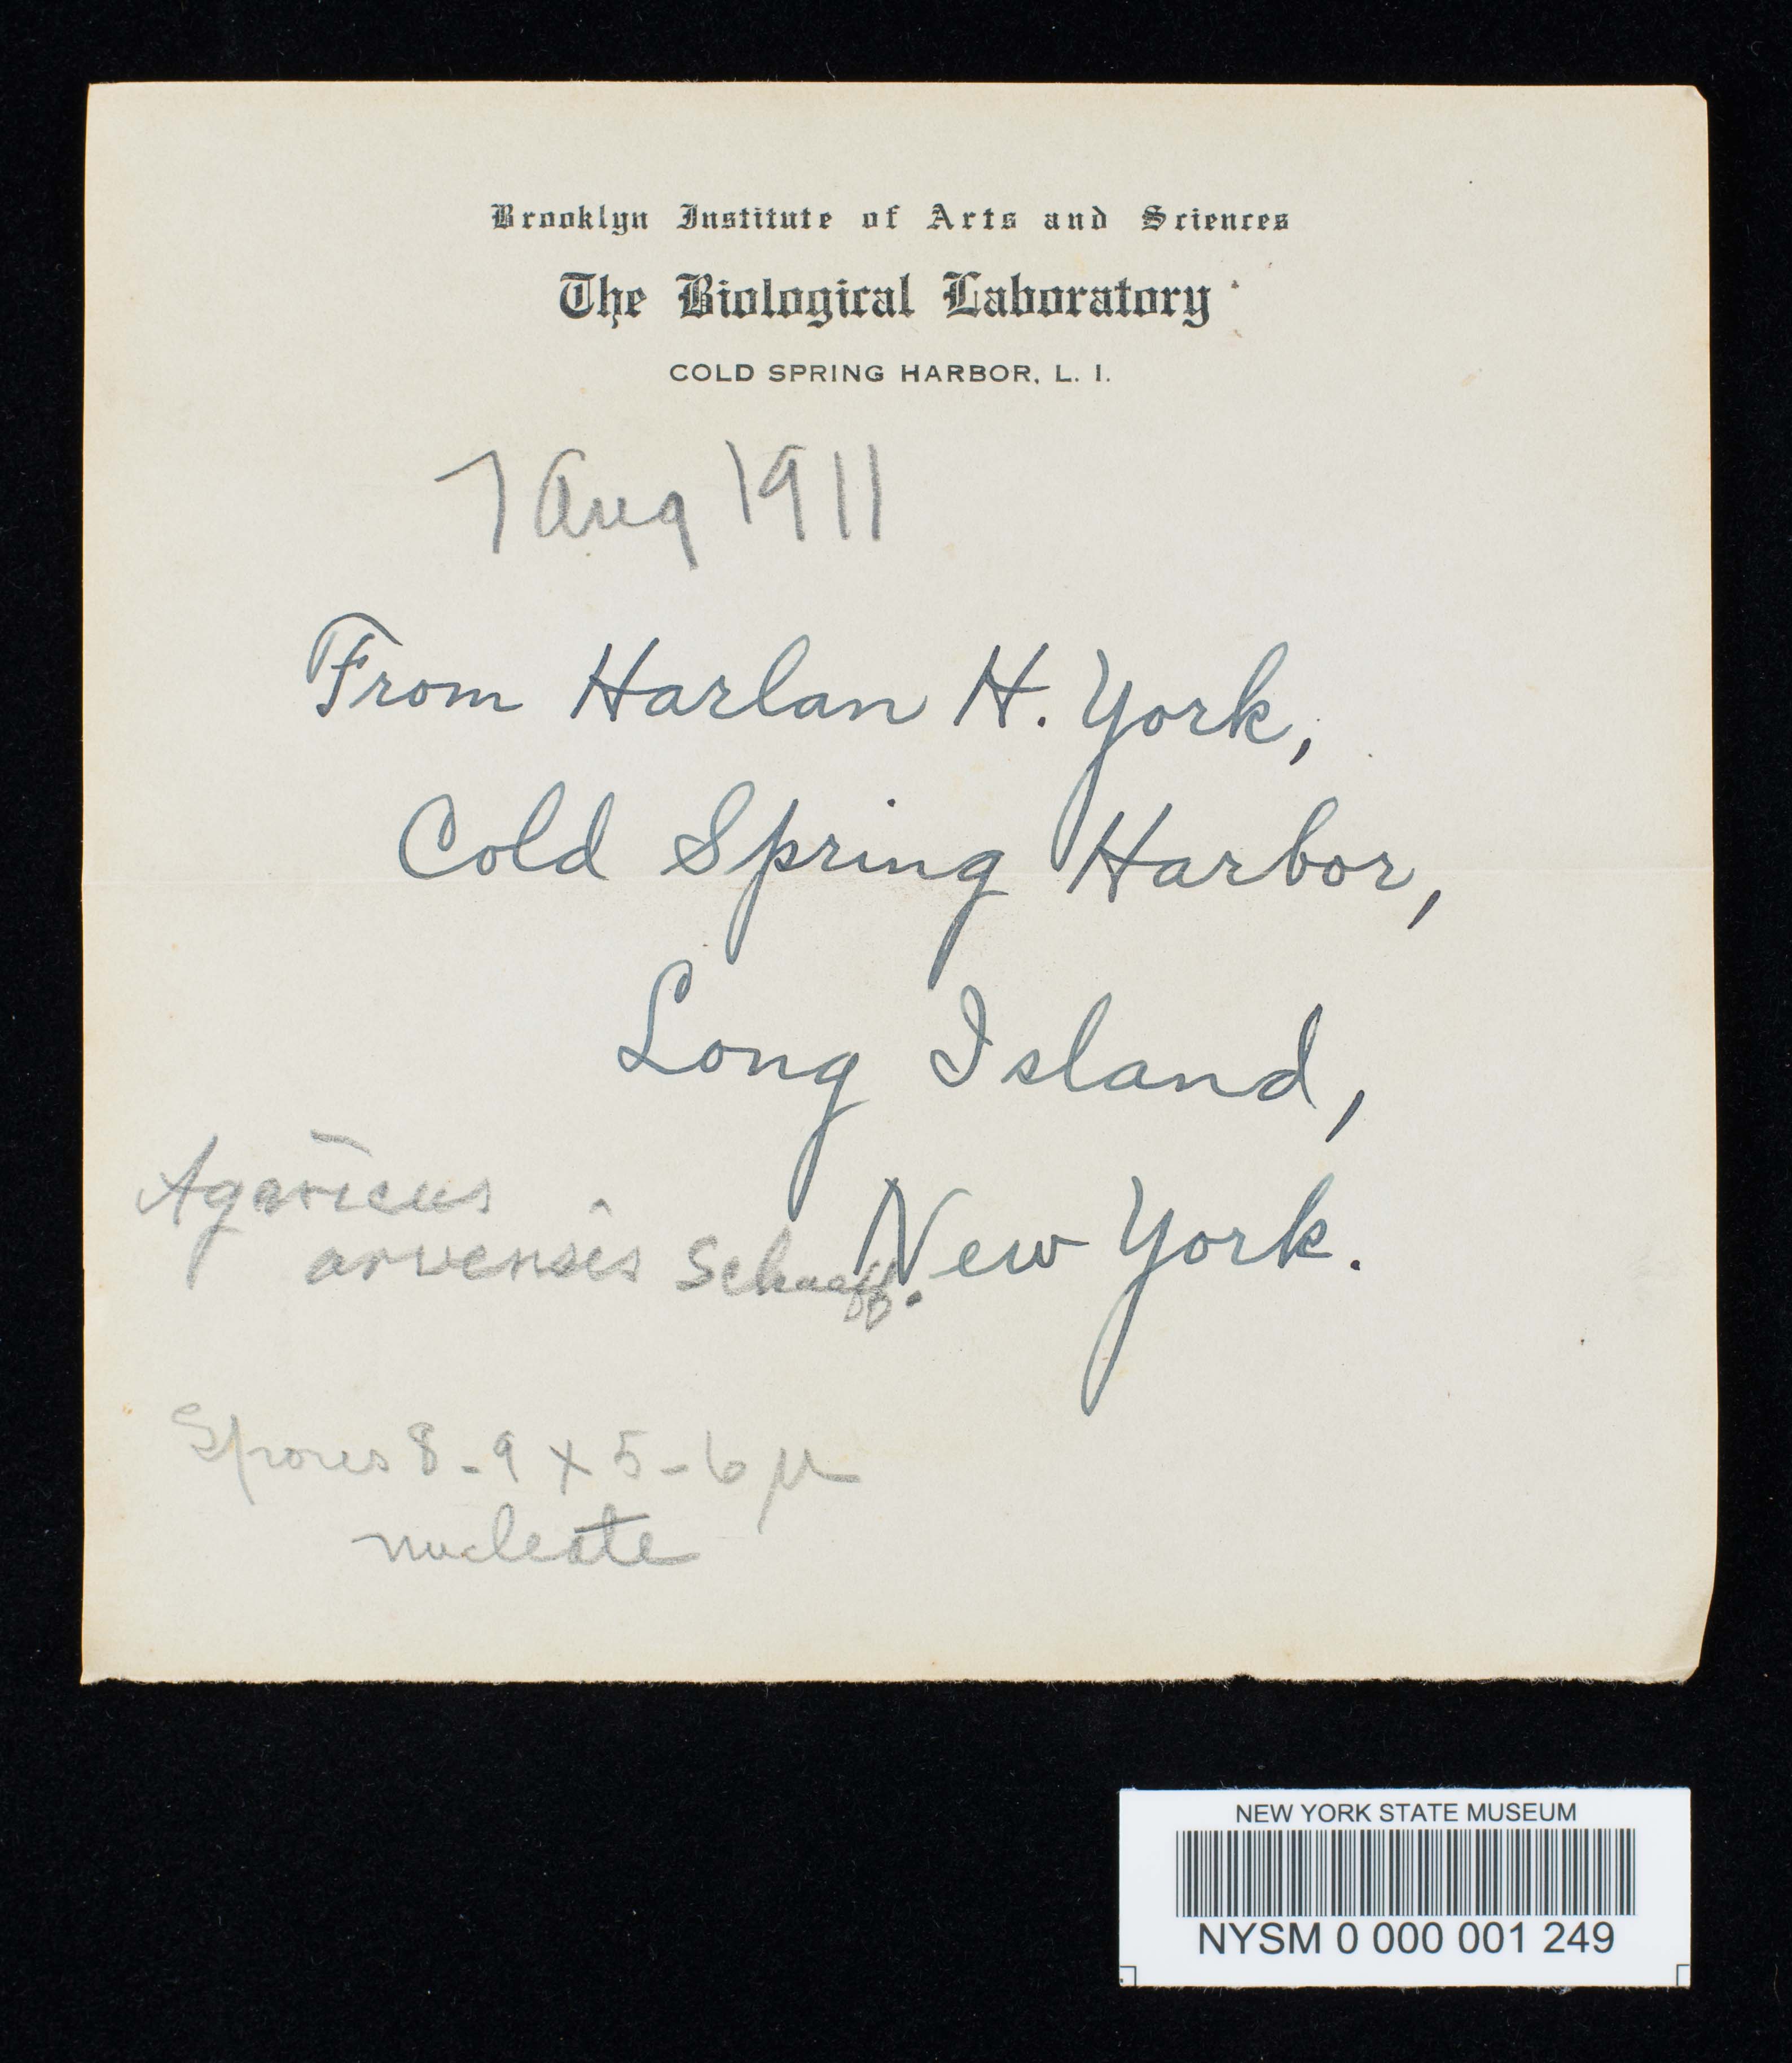 Brooklyn Institute of Arts and Sciences
The Biological Laboratory
COLD SPRING HARBOR, L. I.
7 Aug 1911
From Harlan H. York,
Cold Spring Harbor,
Long Island,
New York.
Agaricus
arvensis Schaeff.
Spores 8-9 x 5-6 µ
nucleate
NEW YORK STATE MUSEUM
NYSM 0 000 001 249